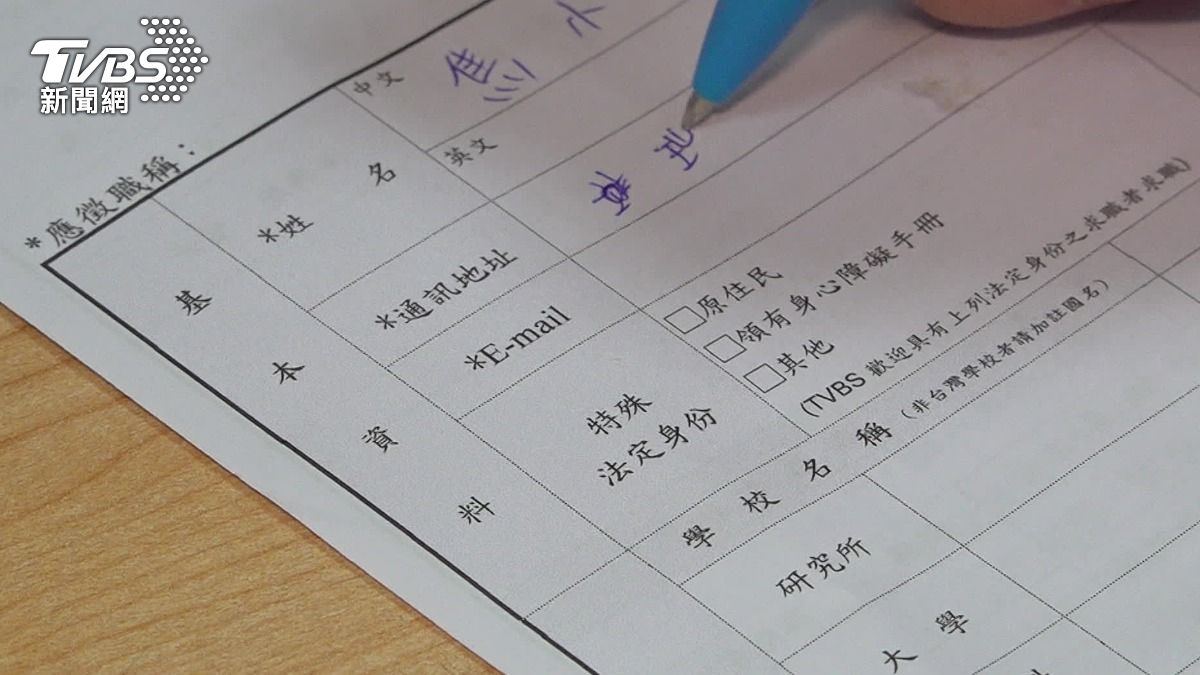 TVBS
新聞網
*應徵職稱：
基本資料
*姓名
中文
焦 小
英文
*通訊地址
*E-mail
特殊
法定身份
□原住民
□領有身心障礙手冊
□其他
(TVBS 歡迎具有上列法定身份之求職者求職)
學校名稱(非台灣學校者請加註國名)
研究所
大學